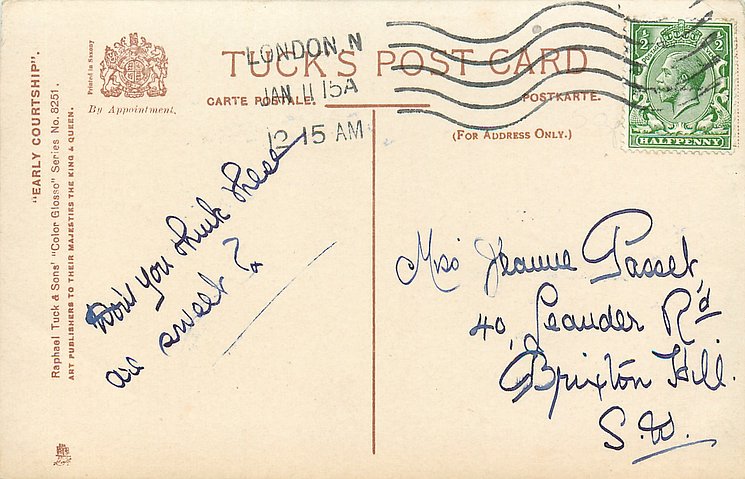 "EARLY COURTSHIP".
Raphael Tuck & Sons' "Color Glosso" Series No. 8251.
ART PUBLISHERS TO THEIR MAJESTIES THE KING & QUEEN.
Printed in Saxony
By Appointment.
TUCK'S POST CARD
CARTE POSTALE.
POSTKARTE.
(FOR ADDRESS ONLY.)
LONDON. N
JAN 11 15A
12.15 AM
½ ½
HALFPENNY
Don't you think these
are sweet?
Miss Jeanne Passet,
40, Leander Rd
Brixton Hill.
S.W.